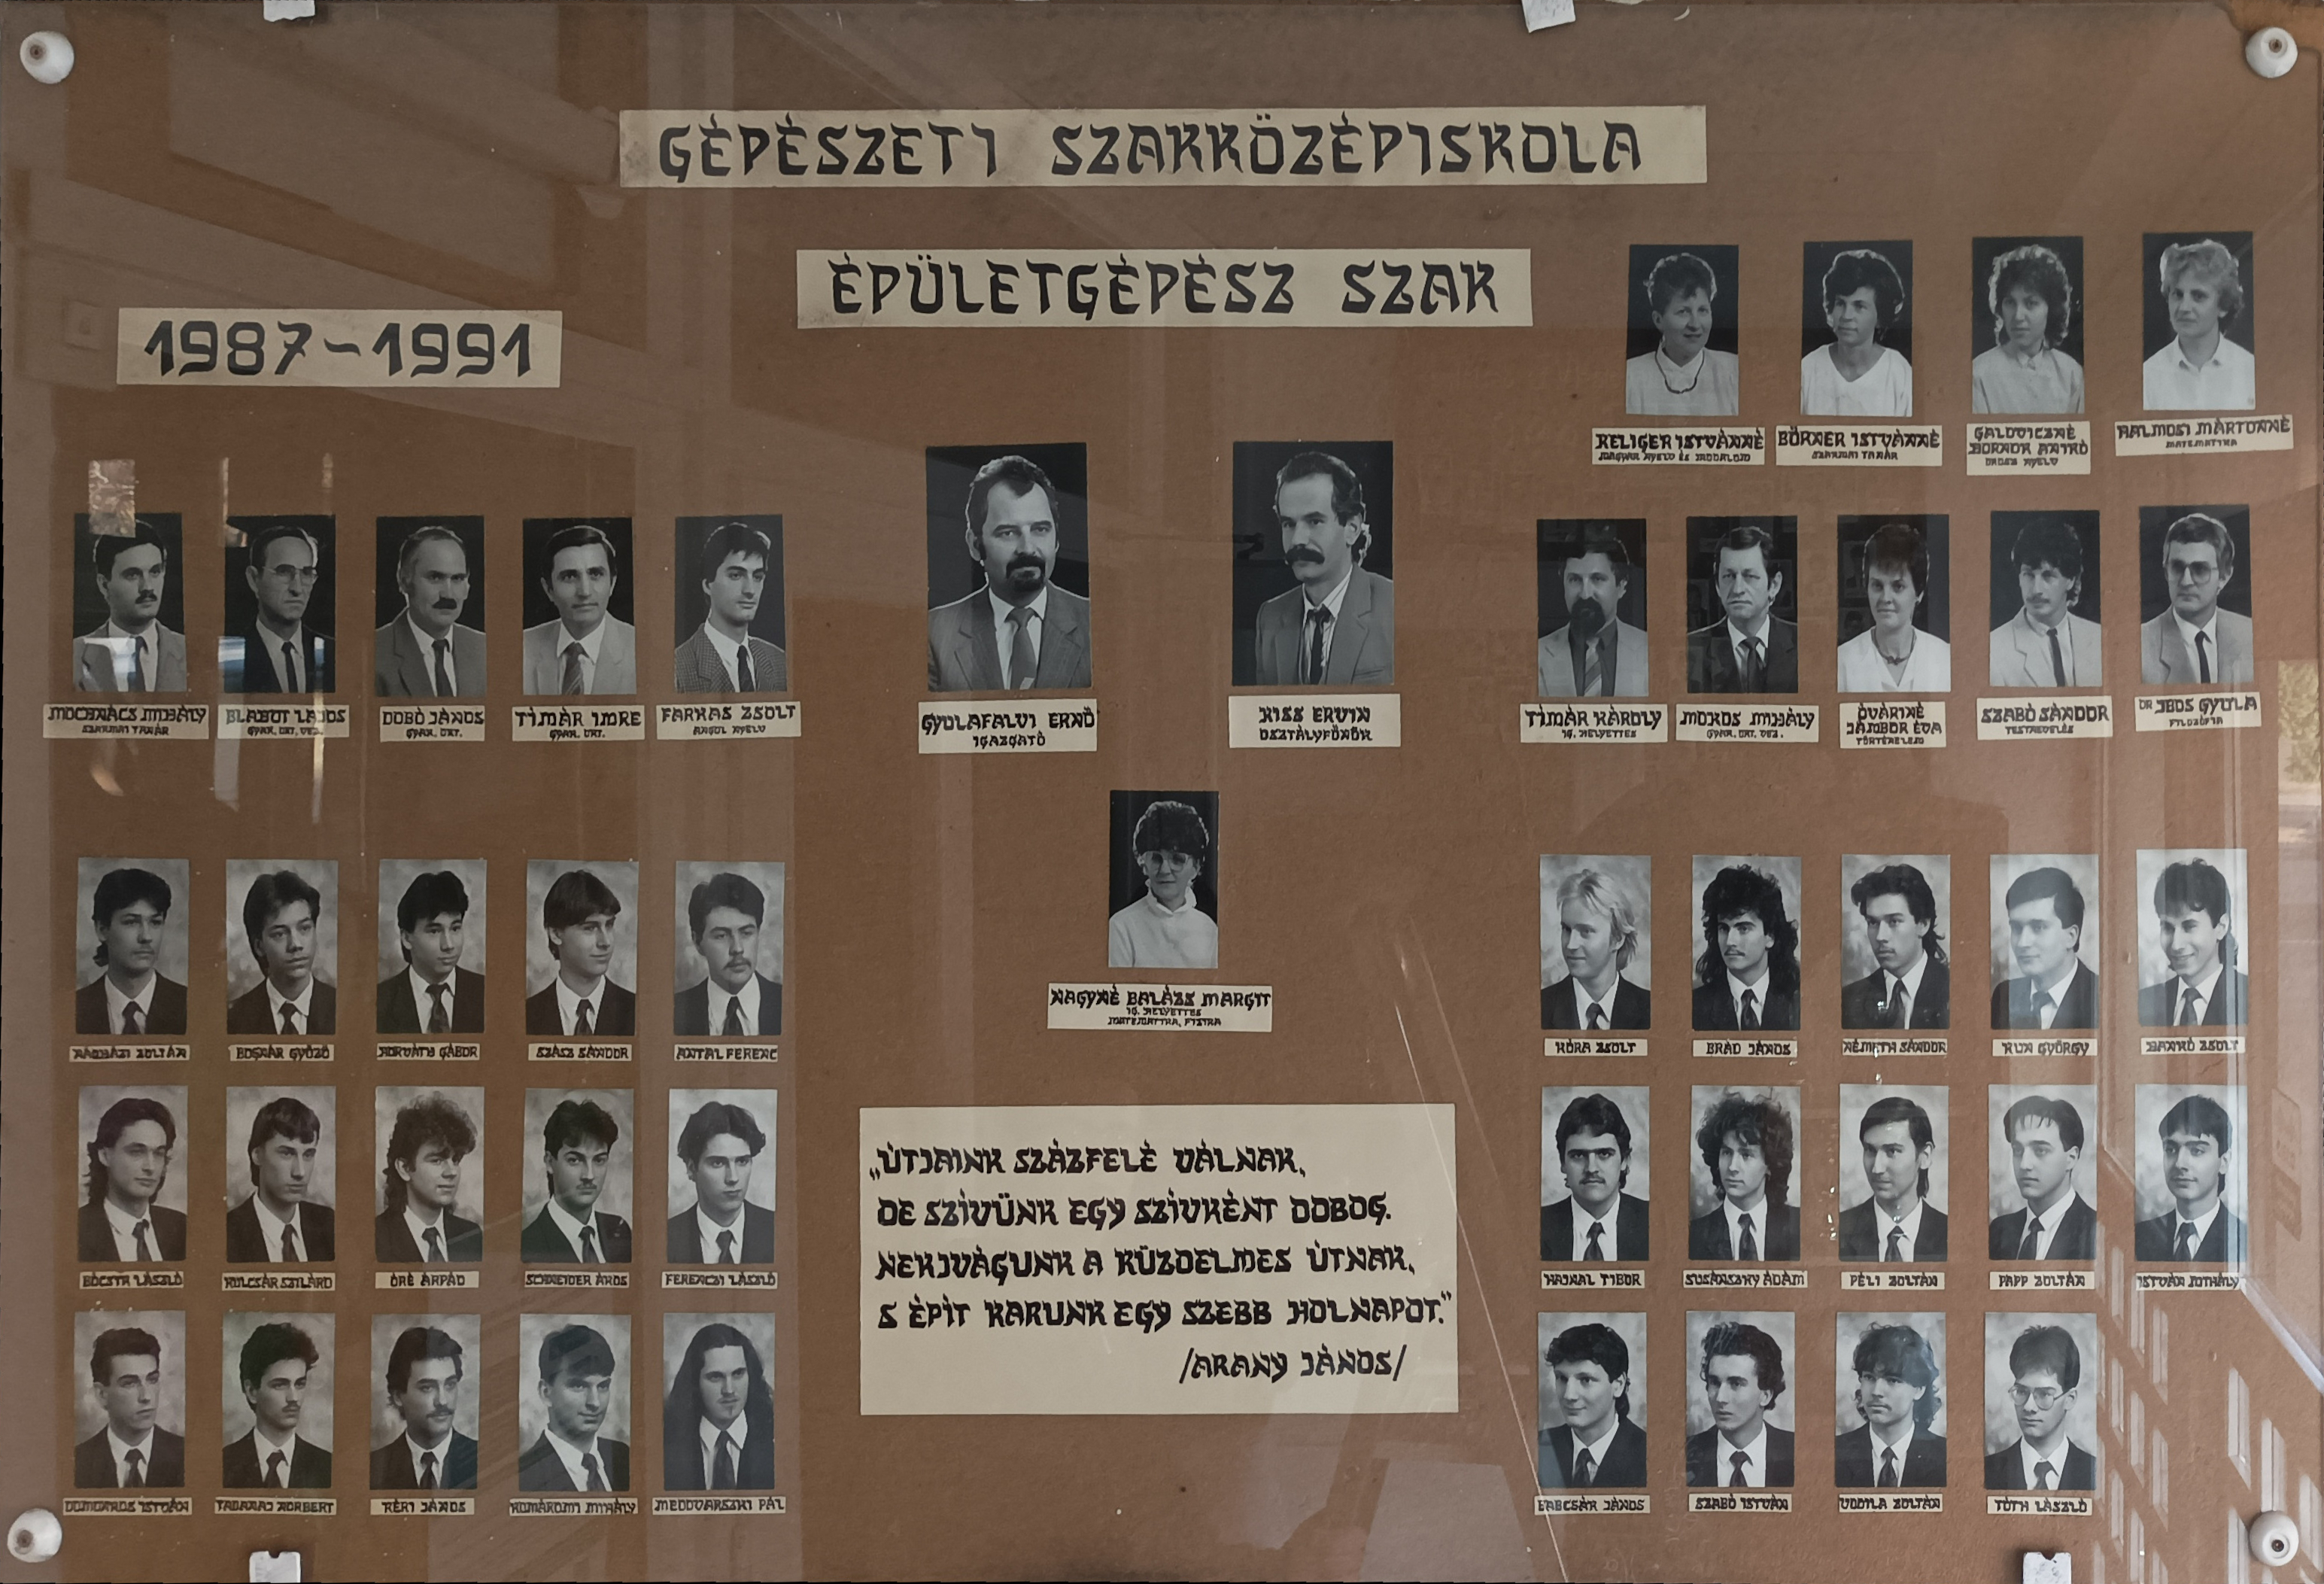 GÉPÉSZETI SZAKKÖZÉPISKOLA
ÉPÜLETGÉPÉSZ SZAK
1987-1991
RELIGER ISTVÁNNÉ
MAGYAR NYELV ÉS IRODALOM
BÖRNER ISTVÁNNÉ
SZAKMAI TANÁR
GALOVICZNÉ
BORNOR ANIKÓ
OROSZ NYELV
HALMOSI MÁRTONNÉ
MATEMATIKA
MOCSNÁCS MIHÁLY
SZAKMAI TANÁR
BLABUT LAJOS
GYAK. OKT. VEZ.
DOBÓ JÁNOS
GYAK. OKT.
TÍMÁR IMRE
GYAK. OKT.
FARKAS ZSOLT
ANGOL NYELV
GYULAFALVI ERNŐ
IGAZGATÓ
KISS ERVIN
OSZTÁLYFŐNÖK
TÍMÁR KÁROLY
IG. HELYETTES
MOKOS MIHÁLY
GYAK. OKT. VEZ.
ÓVÁRINÉ
JÁMBOR ÉVA
TÖRTÉNELEM
SZABÓ SÁNDOR
TESTNEVELÉS
DR. IBOS GYULA
FILOZÓFIA
NAGYNÉ BALÁZS MARGIT
IG. HELYETTES
MATEMATIKA, FIZIKA
ZOLTÁN
BOGNÁR GYŐZŐ
HORVÁTH GÁBOR
SZÁSZ SÁNDOR
ANTAL FERENC
KÓRA ZSOLT
BRÁD JÁNOS
NÉMETH SÁNDOR
KUN GYÖRGY
BANKÓ ZSOLT
LÁSZLÓ
KULCSÁR SZILÁRD
ŐRÉ ÁRPÁD
SCHNEIDER ÁKOS
FERENCZI LÁSZLÓ
HAJNAL TIBOR
SUSÁNSZKY ÁDÁM
PÉLI ZOLTÁN
PAPP ZOLTÁN
ISTVÁN MIHÁLY
„ÚTJAINK SZÁZFELÉ VÁLNAK,
DE SZÍVÜNK EGY SZÍVKÉNT DOBOG.
NEKIVÁGUNK A KÜZDELMES ÚTNAK,
S ÉPÍT KARUNK EGY SZEBB HOLNAPOT."
/ARANY JÁNOS/
DOMONKOS ISTVÁN
NORBERT
KÉRI JÁNOS
KOMÁROMI MIHÁLY
MEDOVARSZKI PÁL
BABCSÁR JÁNOS
SZABÓ ISTVÁN
VODILA ZOLTÁN
TÓTH LÁSZLÓ